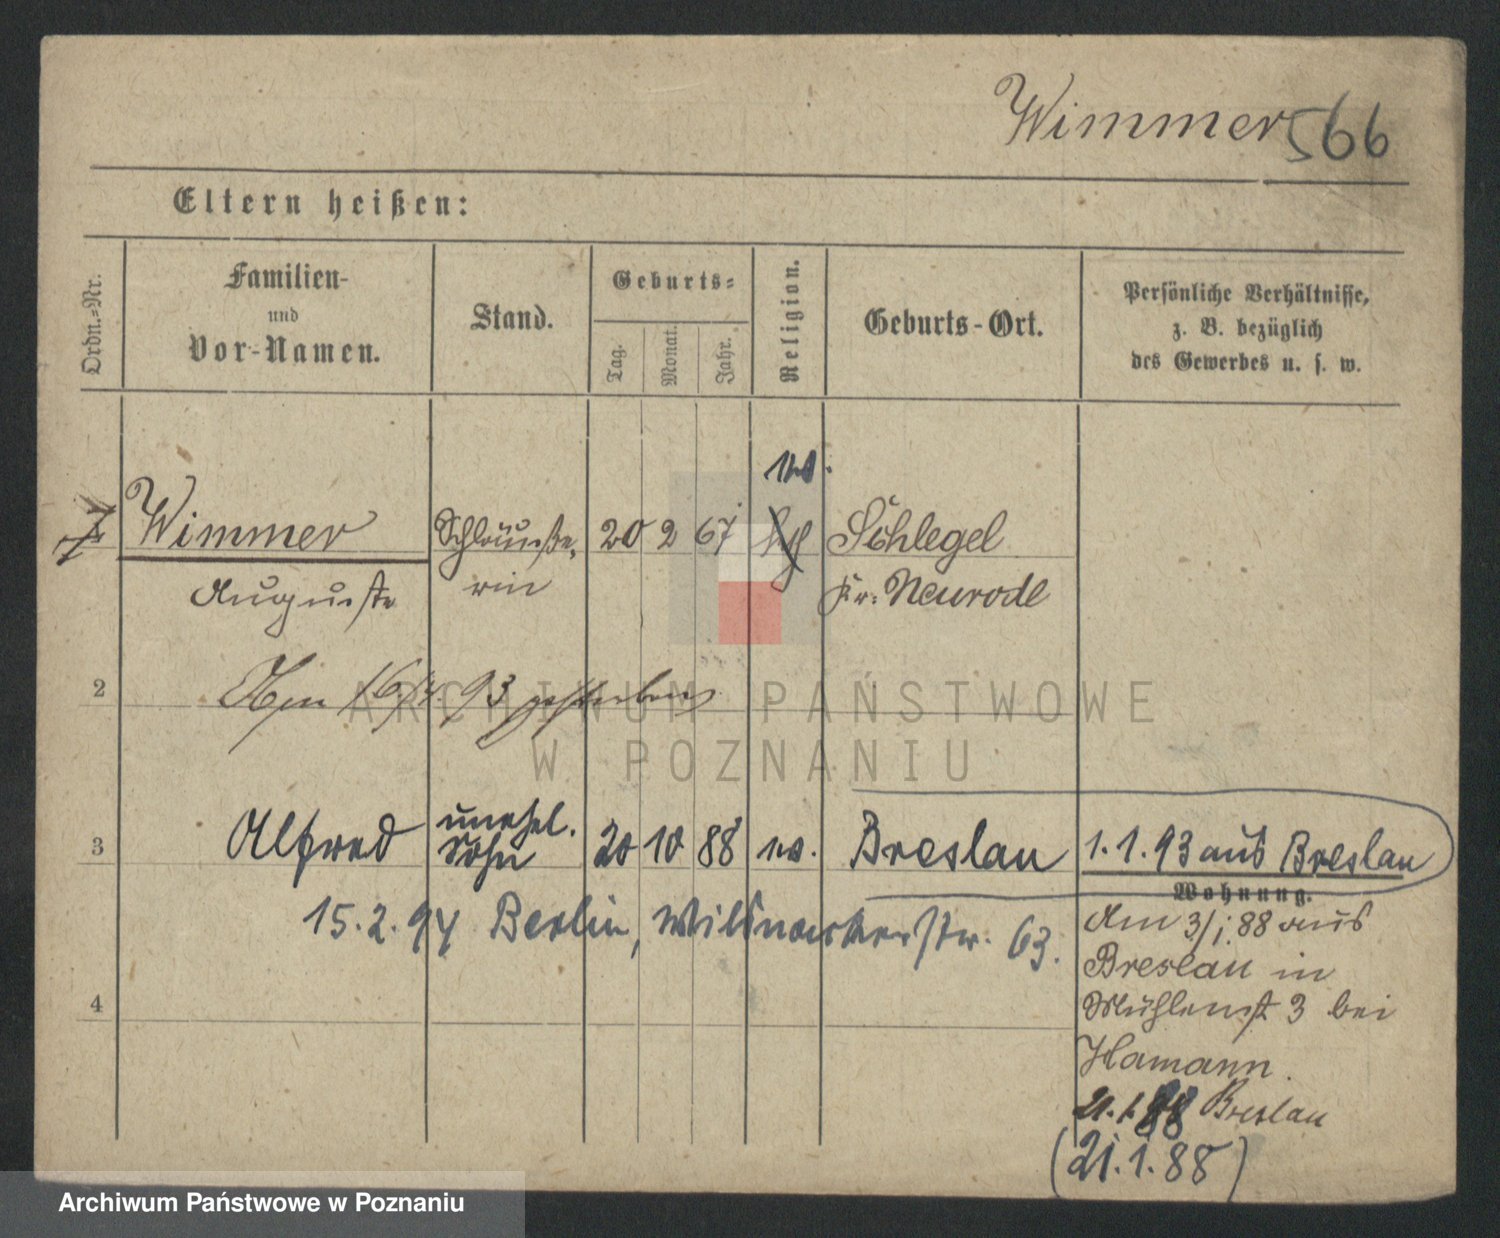 Wimmer 566
Eltern heißen:
Ordn.-Nr.
Familien-
und
Vor-Namen.
Stand.
Geburts-
Tag.
Monat.
Jahr.
Religion.
Geburts-Ort.
Persönliche Verhältnisse,
z. B. bezüglich
des Gewerbes u. s. w.
ev.
Wimmer 20 2 67 Schlegel
Auguste rin Kr. Neurode
2 Am 16/4 93 gestorben
ARCHIWUM PAŃSTWOWE
W POZNANIU
unehel.
3 Alfred Sohn 20 10 88 ev. Breslau 1.1.93 aus Breslau
Wohnung.
15.2.94 Berlin, Wilsnackerstr. 63.
Am 3/1. 88 aus
Breslau in
4 Mühlenst 3 bei
Hamann.
21.1.88 Breslau
(21.1.88)
Archiwum Państwowe w Poznaniu